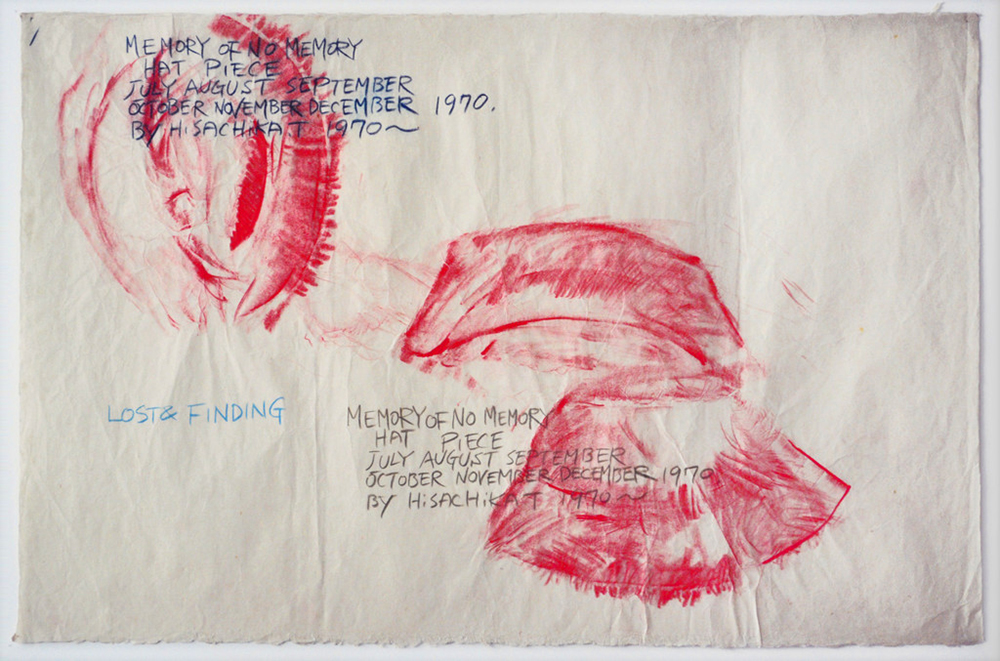 MEMORY OF NO MEMORY
HAT PIECE
JULY AUGUST SEPTEMBER
OCTOBER NOVEMBER DECEMBER 1970.
BY HiSACHiKA T 1970~
LOST& FINDING
MEMORY OF NO MEMORY
HAT PIECE
JULY AUGUST SEPTEMBER
OCTOBER NOVEMBER DECEMBER 1970
BY HiSACHiKA T 1970~